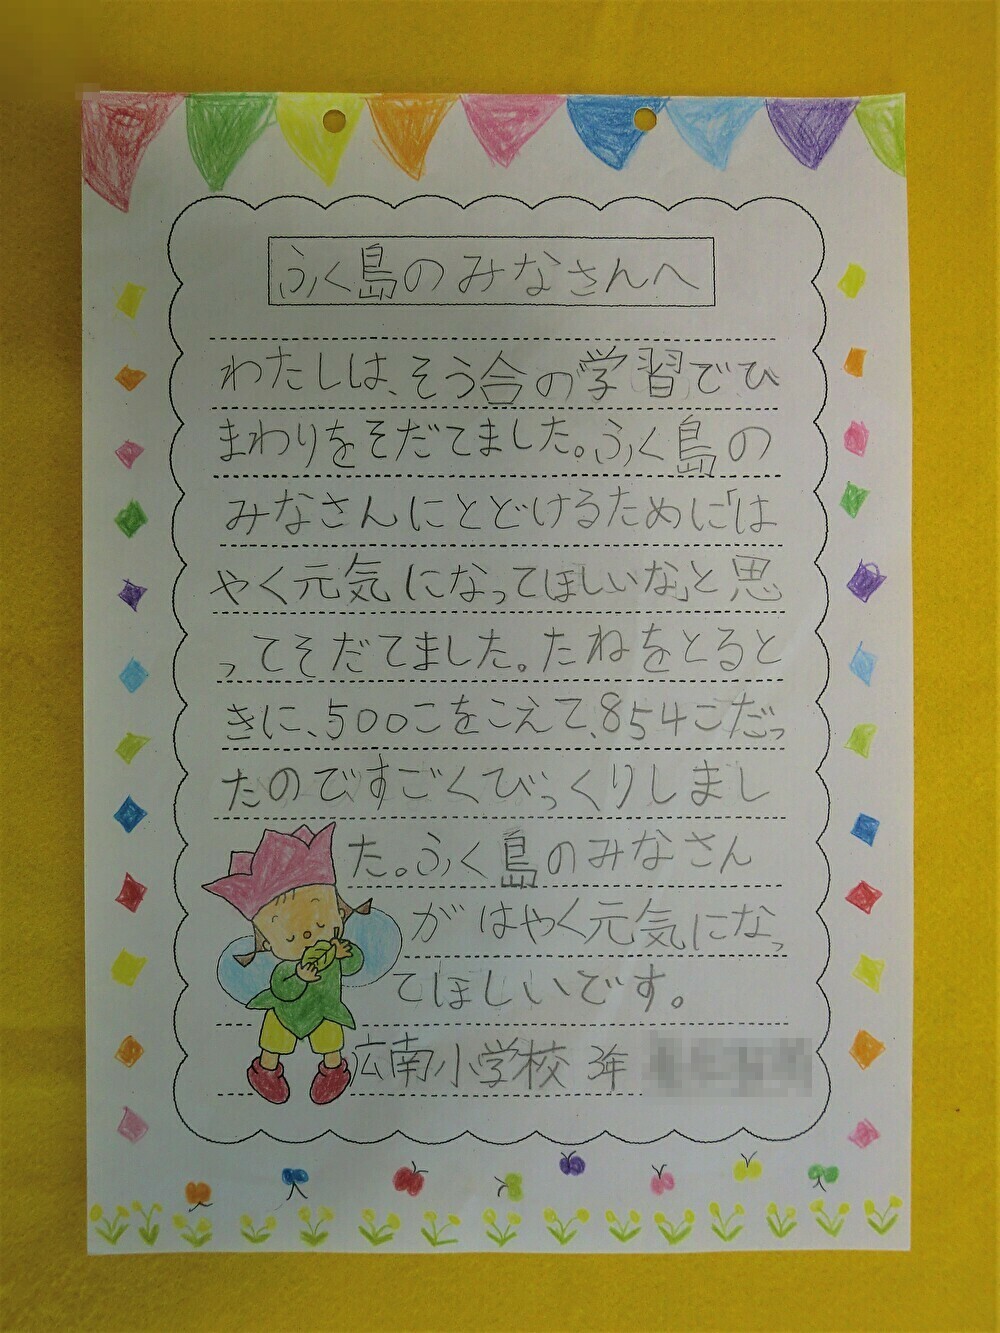 ふく島のみなさんへ
わたしは、そう合の学習でひ
まわりをそだてました。ふく島の
みなさんにとどけるために「は
やく元気になってほしいな」と思
ってそだてました。たねをとると
きに、500こをこえて、854こだっ
たのですごくびっくりしまし
た。ふく島のみなさん
がはやく元気になっ
てほしいです。
広南小学校 3年